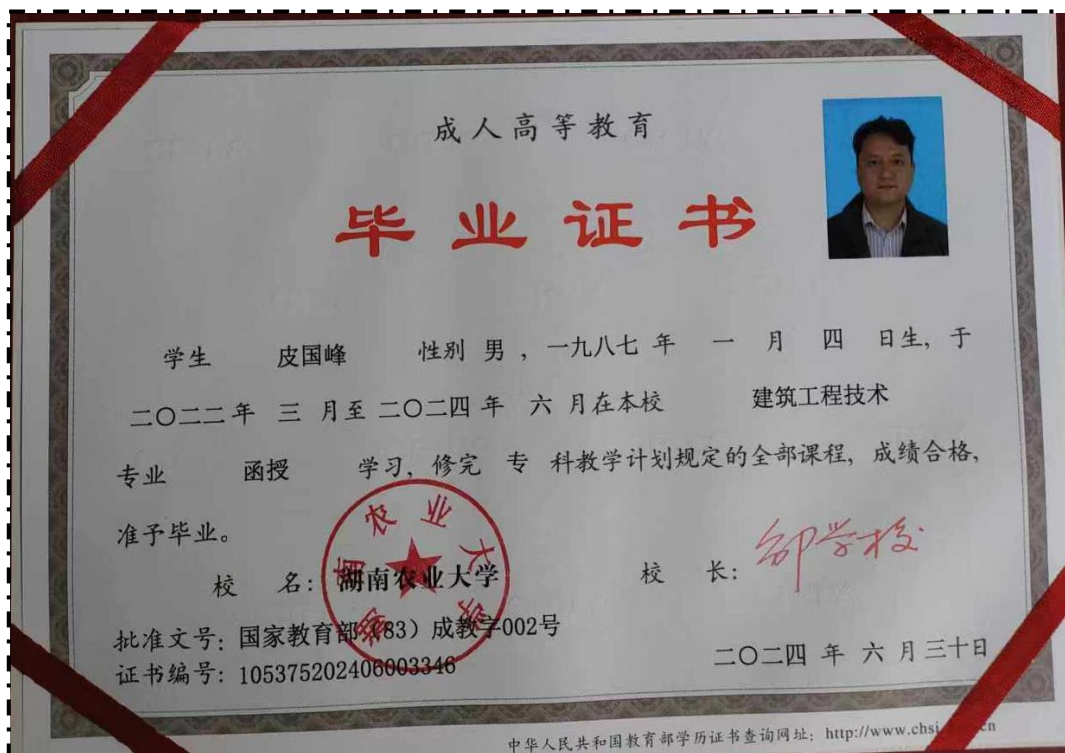 成人高等教育
毕业证书
学生 皮国峰 性别 男 ，一九八七 年 一 月 四 日生，于
二〇二二 年 三 月至 二〇二四 年 六 月在本校 建筑工程技术
专业 函授 学习，修完 专 科教学计划规定的全部课程，成绩合格，
准予毕业。
校 名：湖南农业大学 校 长：邹学校
湖南农业大学
批准文号：国家教育部（83）成教字002号
证书编号：105375202406003346
二〇二四 年 六 月三十日
中华人民共和国教育部学历证书查询网址：http://www.chsi